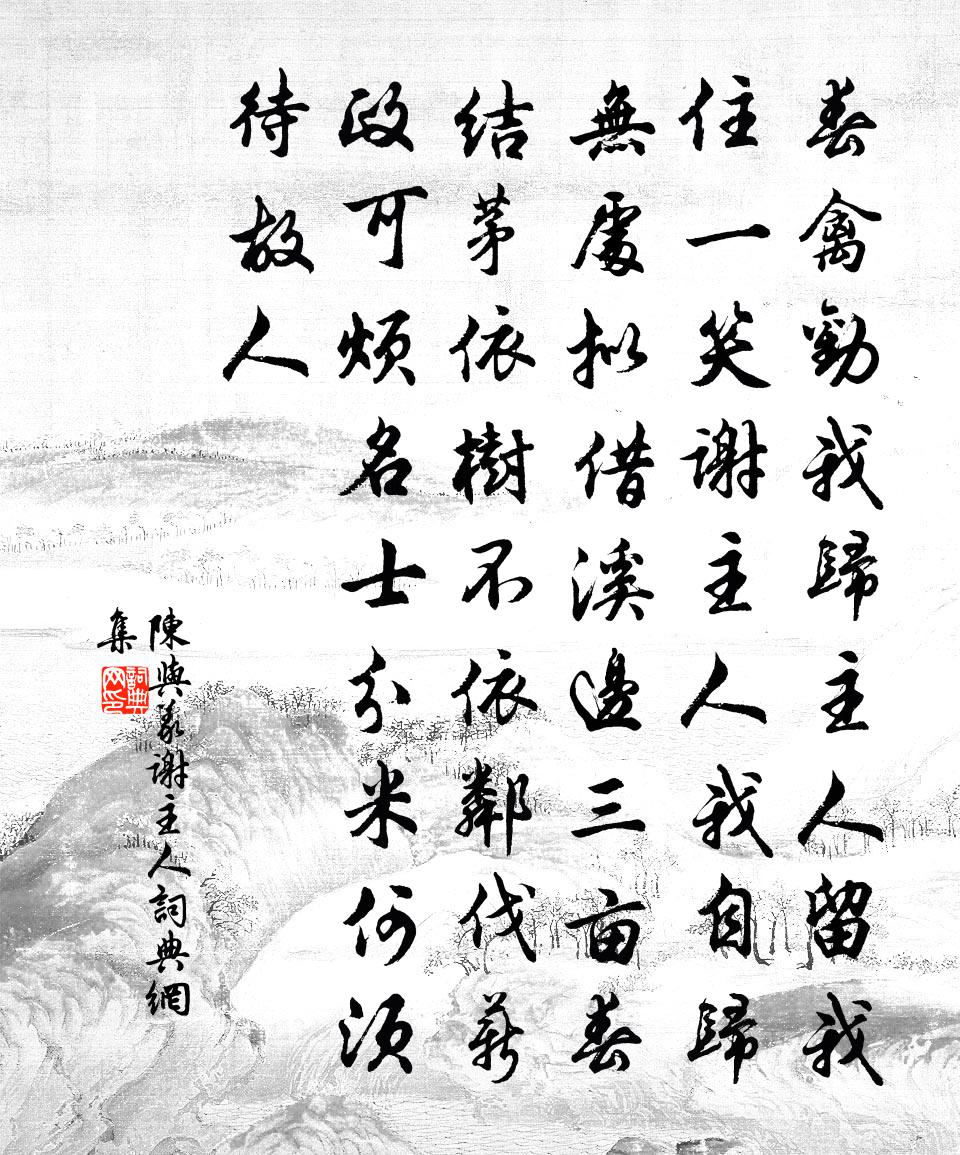 春禽勸我歸主人留我
住一笑謝主人我自歸
無處拟借溪邊三亩春
结茅依樹不依鄰伐薪
政可煩名士分米何須
待故人
陳與義謝主人詞典網
集
詞典
网印